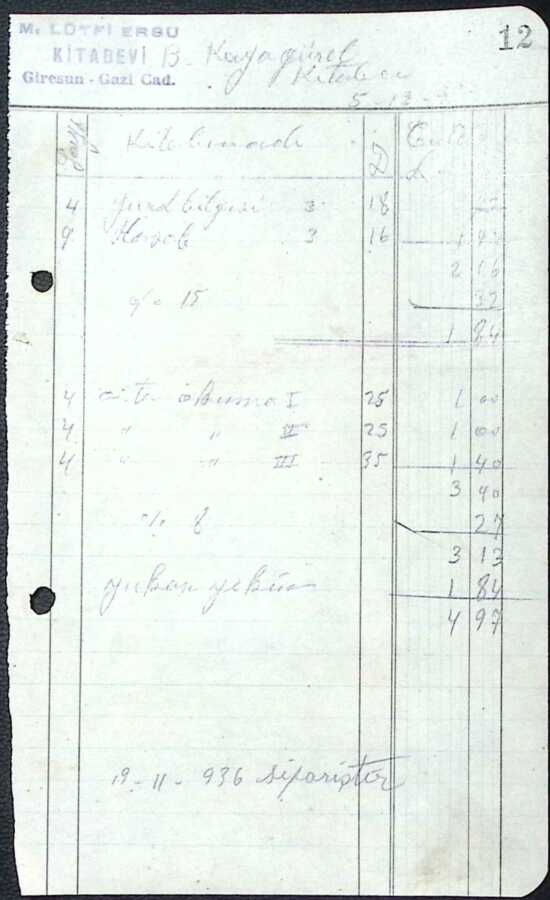 M. LÛTFİ ERGU 12
KİTABEVİ B. Kayagürel
Giresun - Gazi Cad. Kitabevi
5-12-
Kitabın adı
4 yurdbilgisi 3 18 72
9 Hesab 3 16 1 44
2 16
% 15 32
1 84
4 okuma I 25 1 00
4 " " II 25 1 00
4 " " III 35 1 40
3 40
% 8 27
3 13
yukarı yekün 1 84
4 97
19-11-936 siparişter